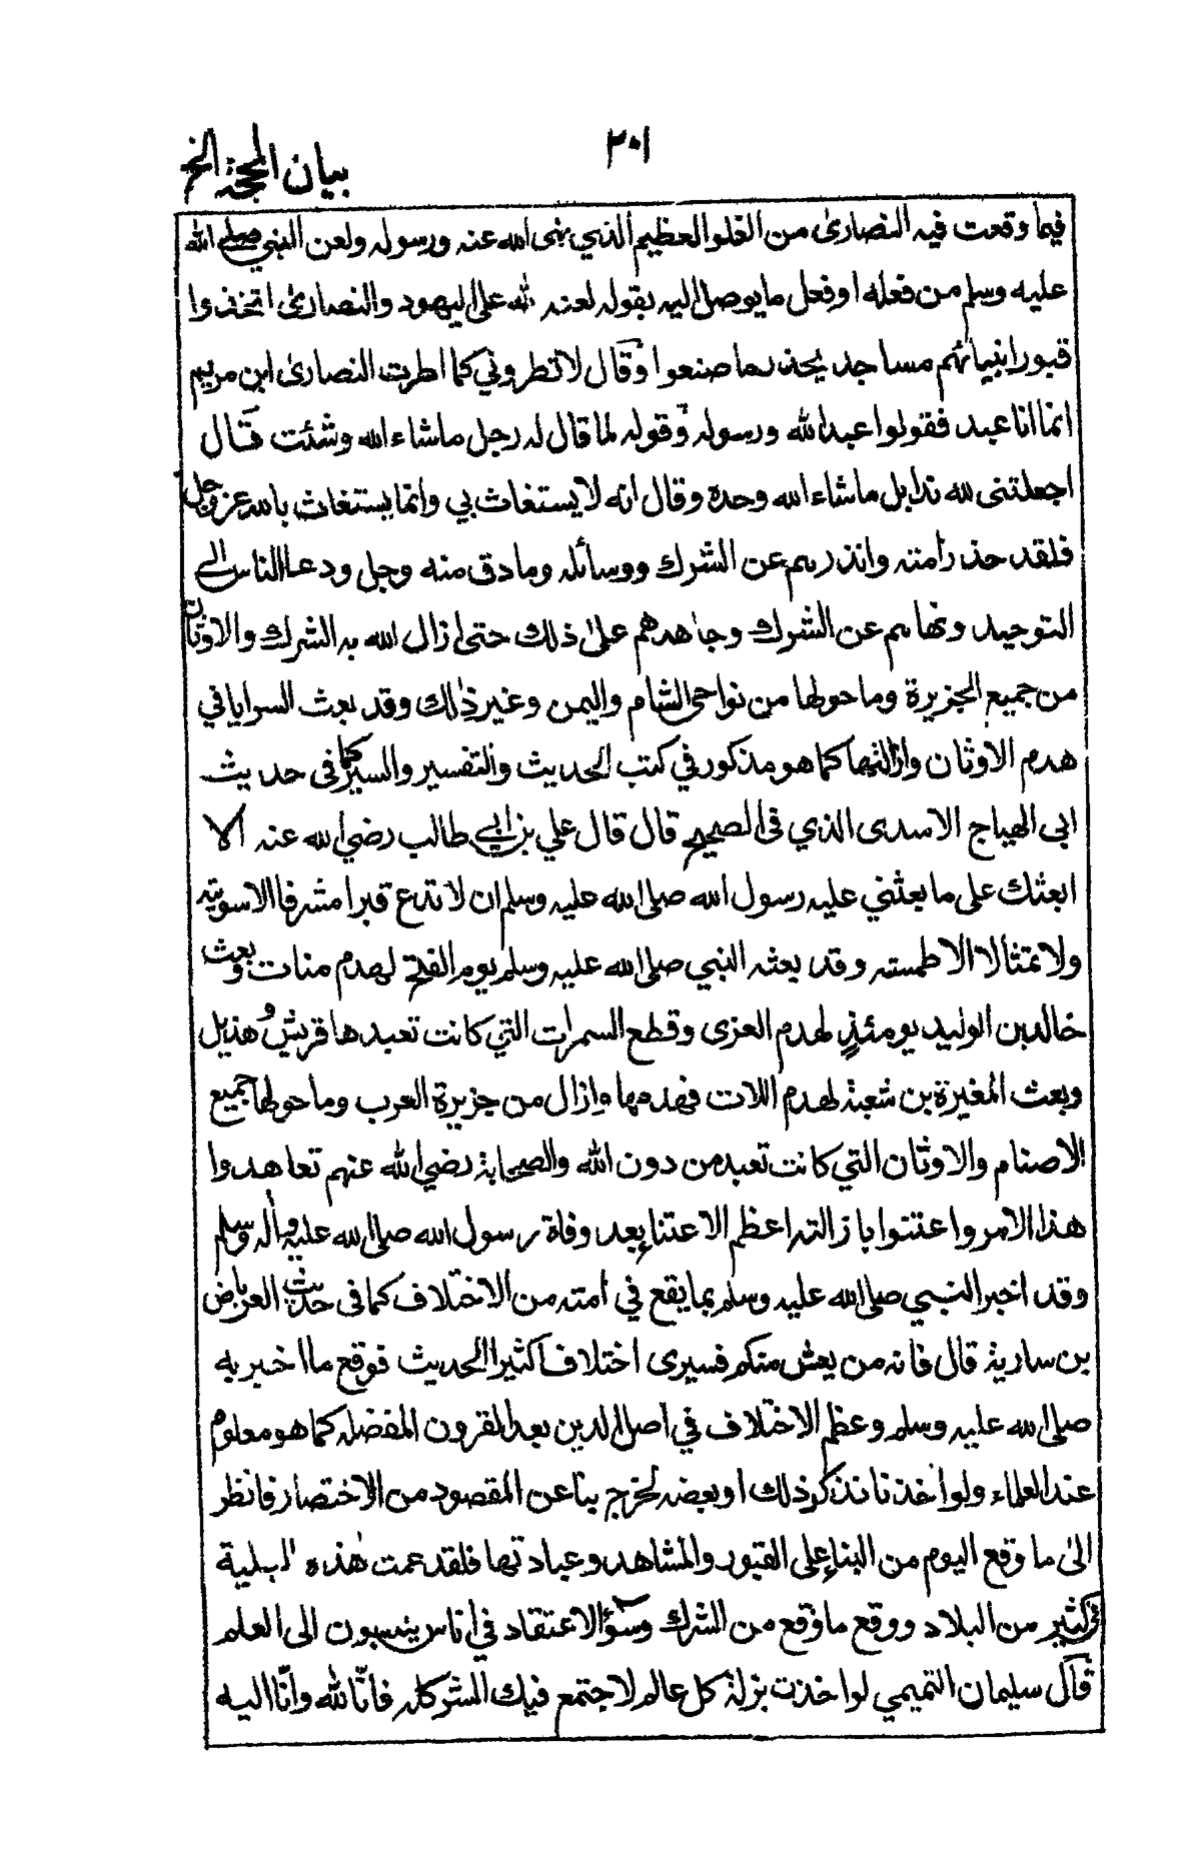 ٢٠١
بيان المحجة الخ
فيما وقعت فيه النصارىٰ من الغلو العظيم الذي نهى الله عنه ورسوله ولعن النبي صلى الله
عليه وسلم من فعله او فعل ما يوصل اليه بقوله لعنة الله على اليهود والنصارىٰ اتخذوا
قبور انبيائهم مساجد يحذر ما صنعوا وقال لا تطروني كما اطرت النصارىٰ ابن مريم
انما انا عبد فقولوا عبد الله ورسوله وقوله لما قال له رجل ما شاء الله وشئت قال
اجعلتنى لله ندا بل ما شاء الله وحده وقال انه لا يستغاث بي وانما يستغاث بالله عز وجل
فلقد حذر أمته وانذرهم عن الشرك ووسائله وما دق منه وجل ودعا الناس الى
التوحيد ونهاهم عن الشرك وجاهدهم علىٰ ذلك حتى ازال الله به الشرك والاوثان
من جميع الجزيرة وما حولها من نواحى الشام واليمن وغير ذٰلك وقد بعث السرايا في
هدم الاوثان وازالتها كما هو مذكور في كتب الحديث والتفسير والسير كما فى حديث
ابى الهياج الاسدى الذي فى الصحيح قال قال علي بن ابي طالب رضي الله عنه الا
ابعثك على ما بعثني عليه رسول الله صلى الله عليه وسلم ان لا تدع قبرا مشرفا الا سويته
ولا تمثالا الا طمسته وقد بعثه النبي صلى الله عليه وسلم يوم الفتح لهدم منات وبعث
خالد بن الوليد يومئذٍ لهدم العزى وقطع السمرات التي كانت تعبدها قريش وهذيل
وبعث المغيرة بن شعبة لهدم اللات فهدمها وازال من جزيرة العرب وما حولها جميع
الاصنام والاوثان التي كانت تعبد من دون الله والصحابة رضي الله عنهم تعاهدوا
هذا الامر واعتنوا بازالته اعظم الاعتناء بعد وفاة رسول الله صلى الله عليه واله وسلم
وقد اخبر النبي صلى الله عليه وسلم بما يقع في أمته من الاختلاف كما فى حديث العرباض
بن سارية قال فانه من يعش منكم فسيرى اختلافا كثيرا الحديث فوقع ما اخبر به
صلى الله عليه وسلم وعظم الاختلاف في اصل الدين بعد القرون المفضلة كما هو معلوم
عند العلماء ولو أخذنا نذكر ذلك او بعضه لخرج بنا عن المقصود من الاختصار فانظر
الىٰ ما وقع اليوم من البناء على القبور والمشاهد وعبادتها فلقد عمت هٰذه البلية
فى كثير من البلاد ووقع ما وقع من الشرك وسوء الاعتقاد في اناس ينسبون الى العلم
قال سليمان التيمي لو اخذت بزلة كل عالم لاجتمع فيك الشر كله فانّا لله وانّا اليه